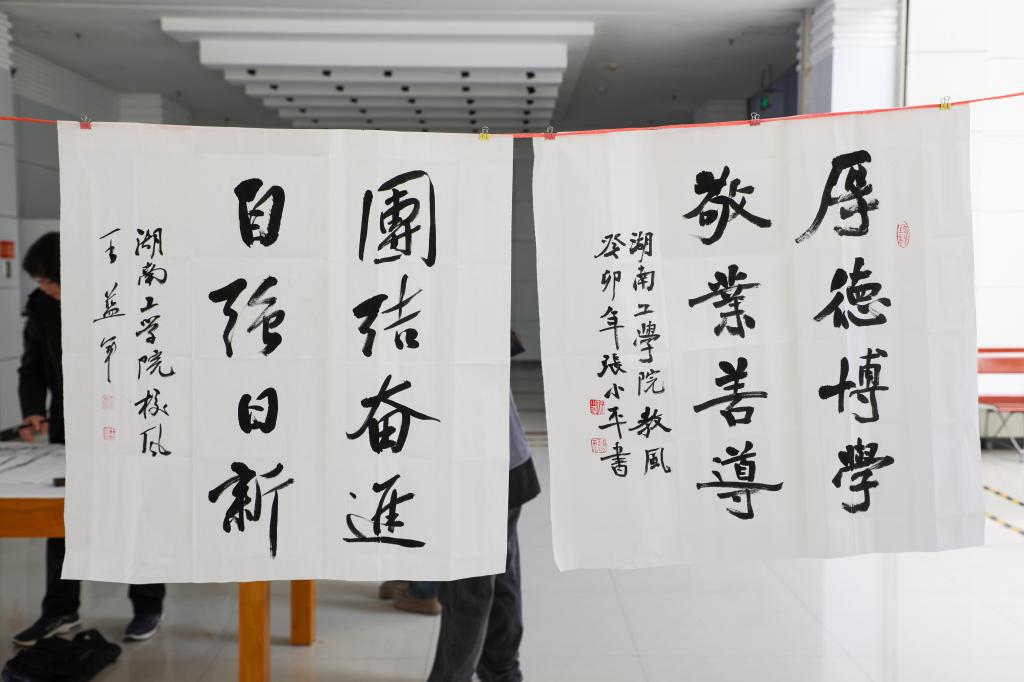 厚德博學
敬業善導
湖南工學院教風
癸卯年張小平書
團结奋進
自强日新
湖南工学院校风
王益军